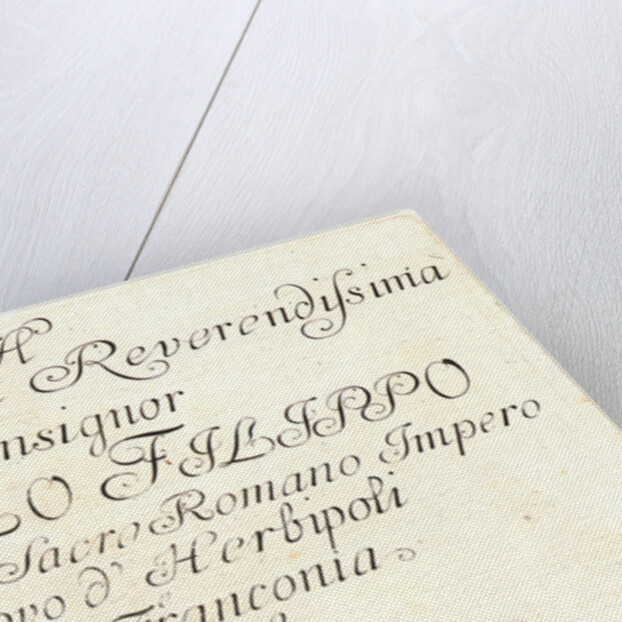 A Reverendissima
nsignor
LO FILIPPO
Sacro Romano Impero
ovo d' Herbipoli
Franconia